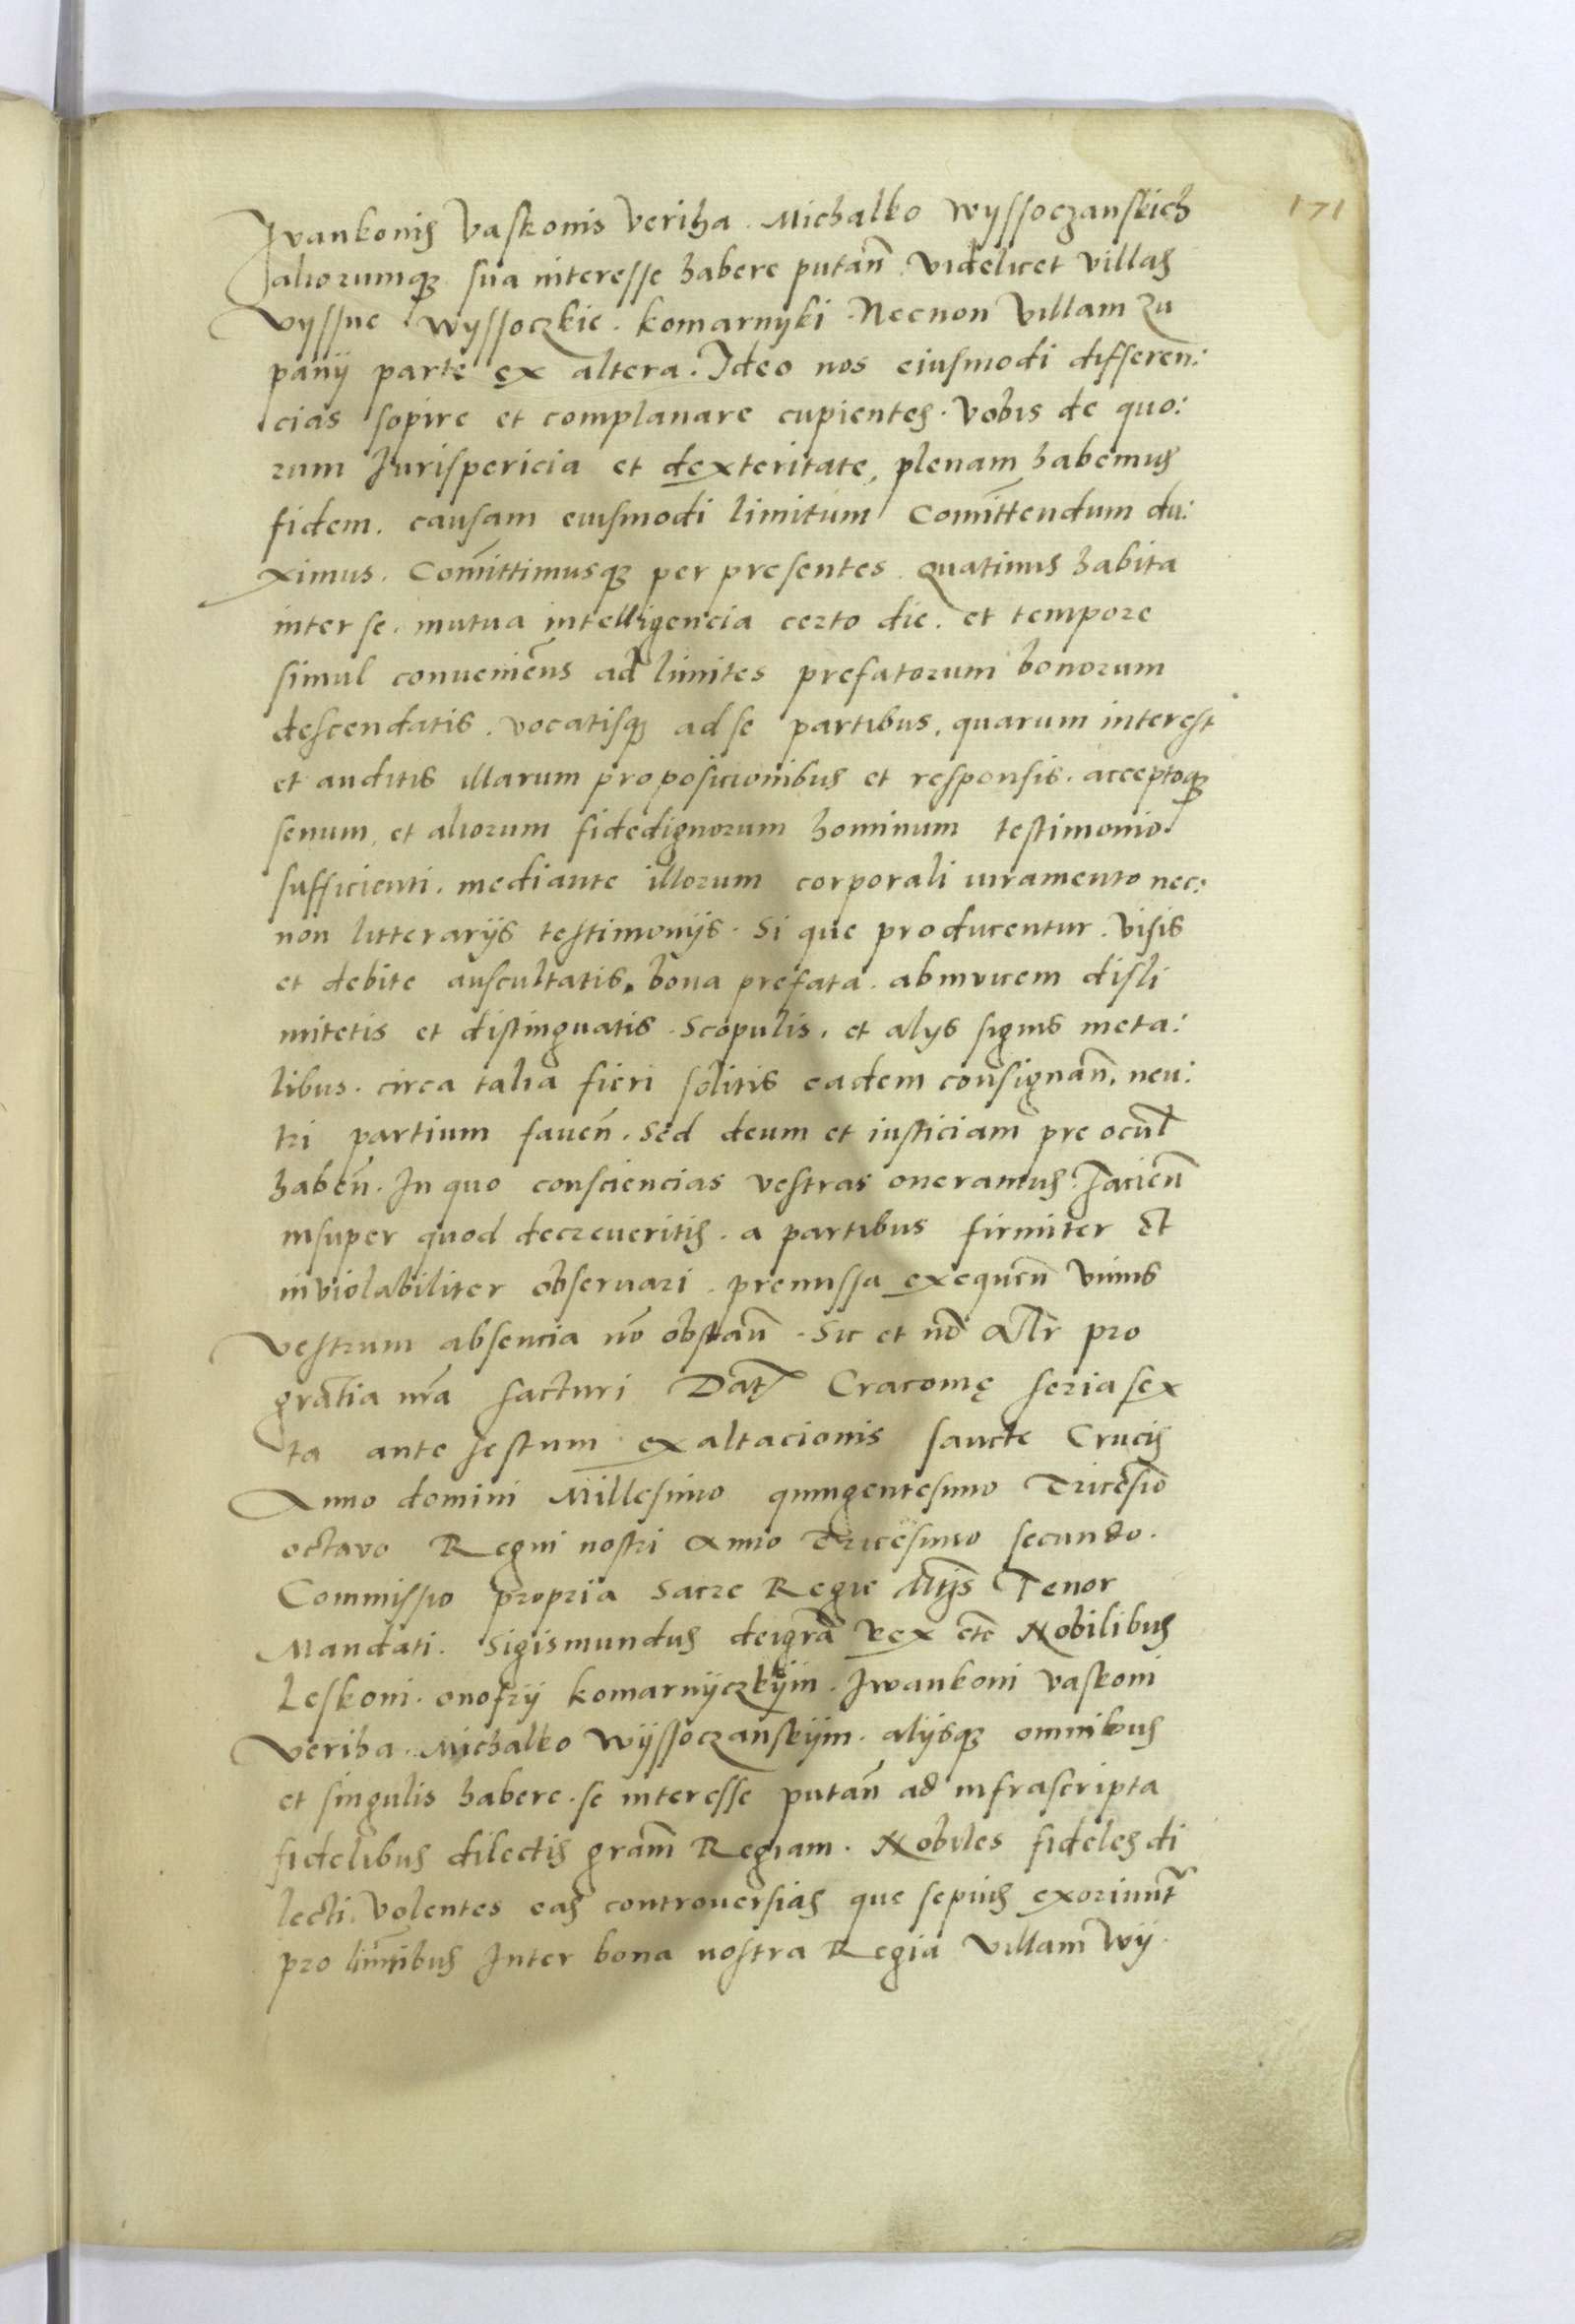 171
Iwankonis Vaskonis Veriha. Michalko Wyssoczanskich
aliorumq₃ sua interesse habere putan̄. videlicet villas
Vyssne Wyssoczkie. Komarnyki. Necnon villam Zu
panÿ parte ex altera. Ideo nos eiusmodi differen:
cias sopire et complanare cupientes. Vobis de quo:
rum Iurispericia et dexteritate, plenam habemus
fidem. causam eiusmodi limitum Com̄ittendum du:
ximus. Com̄ittimusq₃ per presentes. Quatinus habita
inter se. mutua intelligencia certo die. et tempore
simul convenien̄s ad limites prefatorum bonorum
descendatis. vocatisq₃ ad se partibus, quarum interest
et auditis illarum proposicionibus et responsis. acceptoq₃
senum, et aliorum fidedignorum hominum testimonio
sufficienti. mediante illorum corporali iuramento nec:
non litterarÿs testimonÿs. Si que producentur. visis
et debite auscultatis. bona prefata. abinvicem disli
mitetis et distinguatis. Scopulis. et alÿs signis meta:
libus. circa talia fieri solitis eadem consignan̄. neu:
tri partium faven̄. Sed deum et iusticiam pre ocul̄
haben̄. In quo consciencias vestras oneramus. Facien̄
insuper quod decreveritis. a partibus firmiter Et
inviolabiliter observari. premissa exequen̄ unius
vestrum absencia nō obstan̄. Sic et nō al̄r pro
gratia nr̄a facturi Dat Cracovię feria sex
ta ante festum exaltacionis sancte Crucis
Anno domini Millesimo quingentesimo Tricesīo
octavo Regni nostri Anno Tricesimo secundo.
Commissio propria Sacre Regie M̄tis Tenor
Mandati. Sigismundus deigrā Rex etc̄ Nobilibus
Leskoni. onofrÿ Komarnÿczkÿm. Iwankoni Vaskoni
Veriha. Michalko Wÿssoczanskÿm. alÿsq₃ omnibus
et singulis habere. se interesse putan̄ ad infrascripta
fidelibus dilectis gram̄ Regiam. Nobiles fideles di
lecti. Volentes eas controversias que sepius exoriunt̄
pro limitibus Inter bona nostra Regia Villam Wÿ